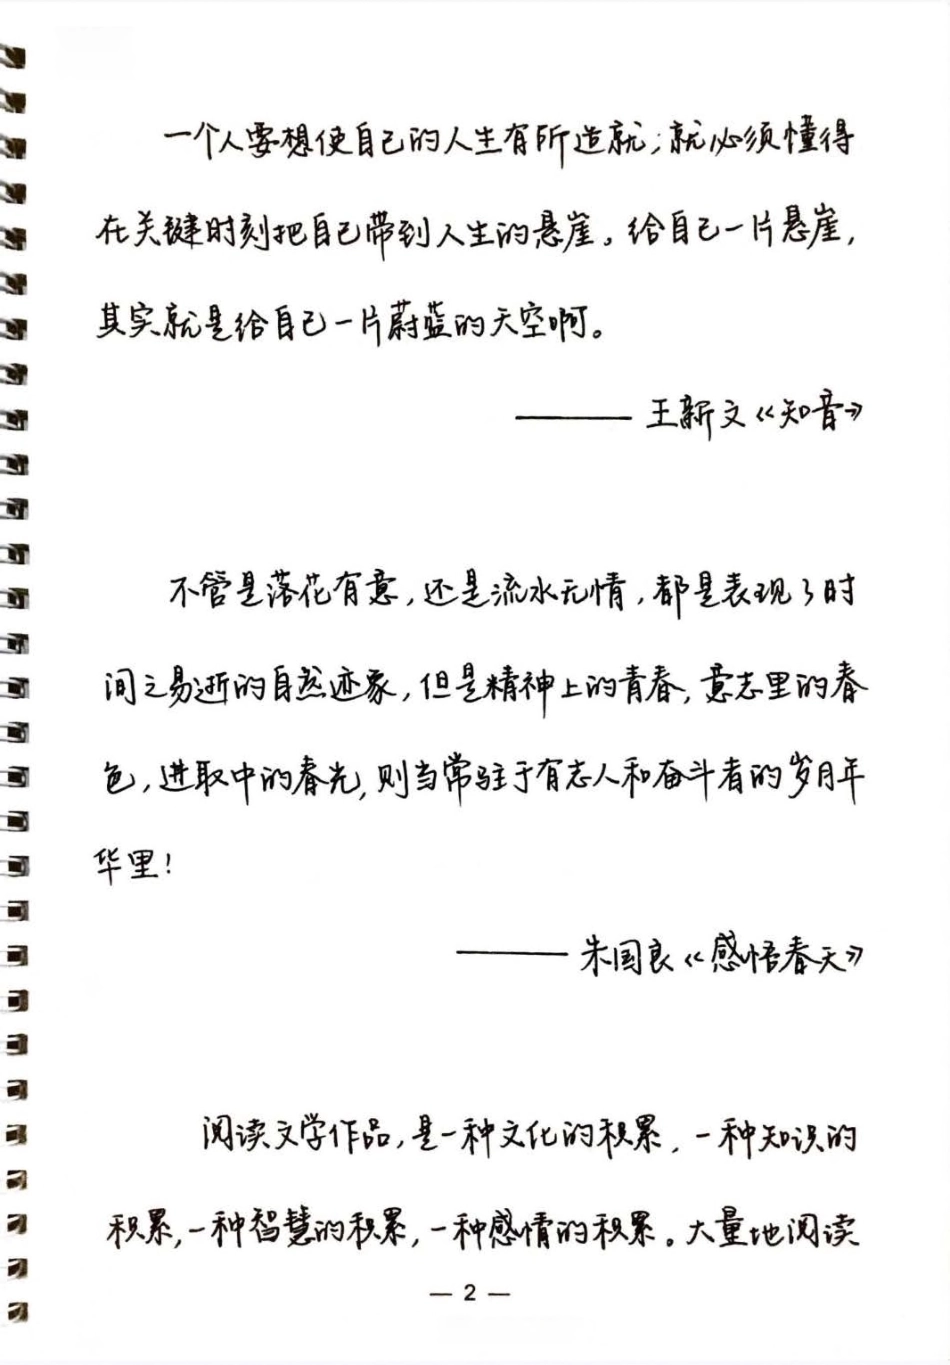 一个人要想使自己的人生有所造就;就必须懂得
在关键时刻把自己带到人生的悬崖。给自己一片悬崖,
其实就是给自己一片蔚蓝的天空啊。
——王新文《知音》
不管是落花有意,还是流水无情,都是表现了时
间之易逝的自然迹象,但是精神上的青春,意志里的春
色,进取中的春光,则当常驻于有志人和奋斗者的岁月年
华里!
——朱国良《感悟春天》
阅读文学作品,是一种文化的积累,一种知识的
积累,一种智慧的积累,一种感情的积累。大量地阅读
— 2 —